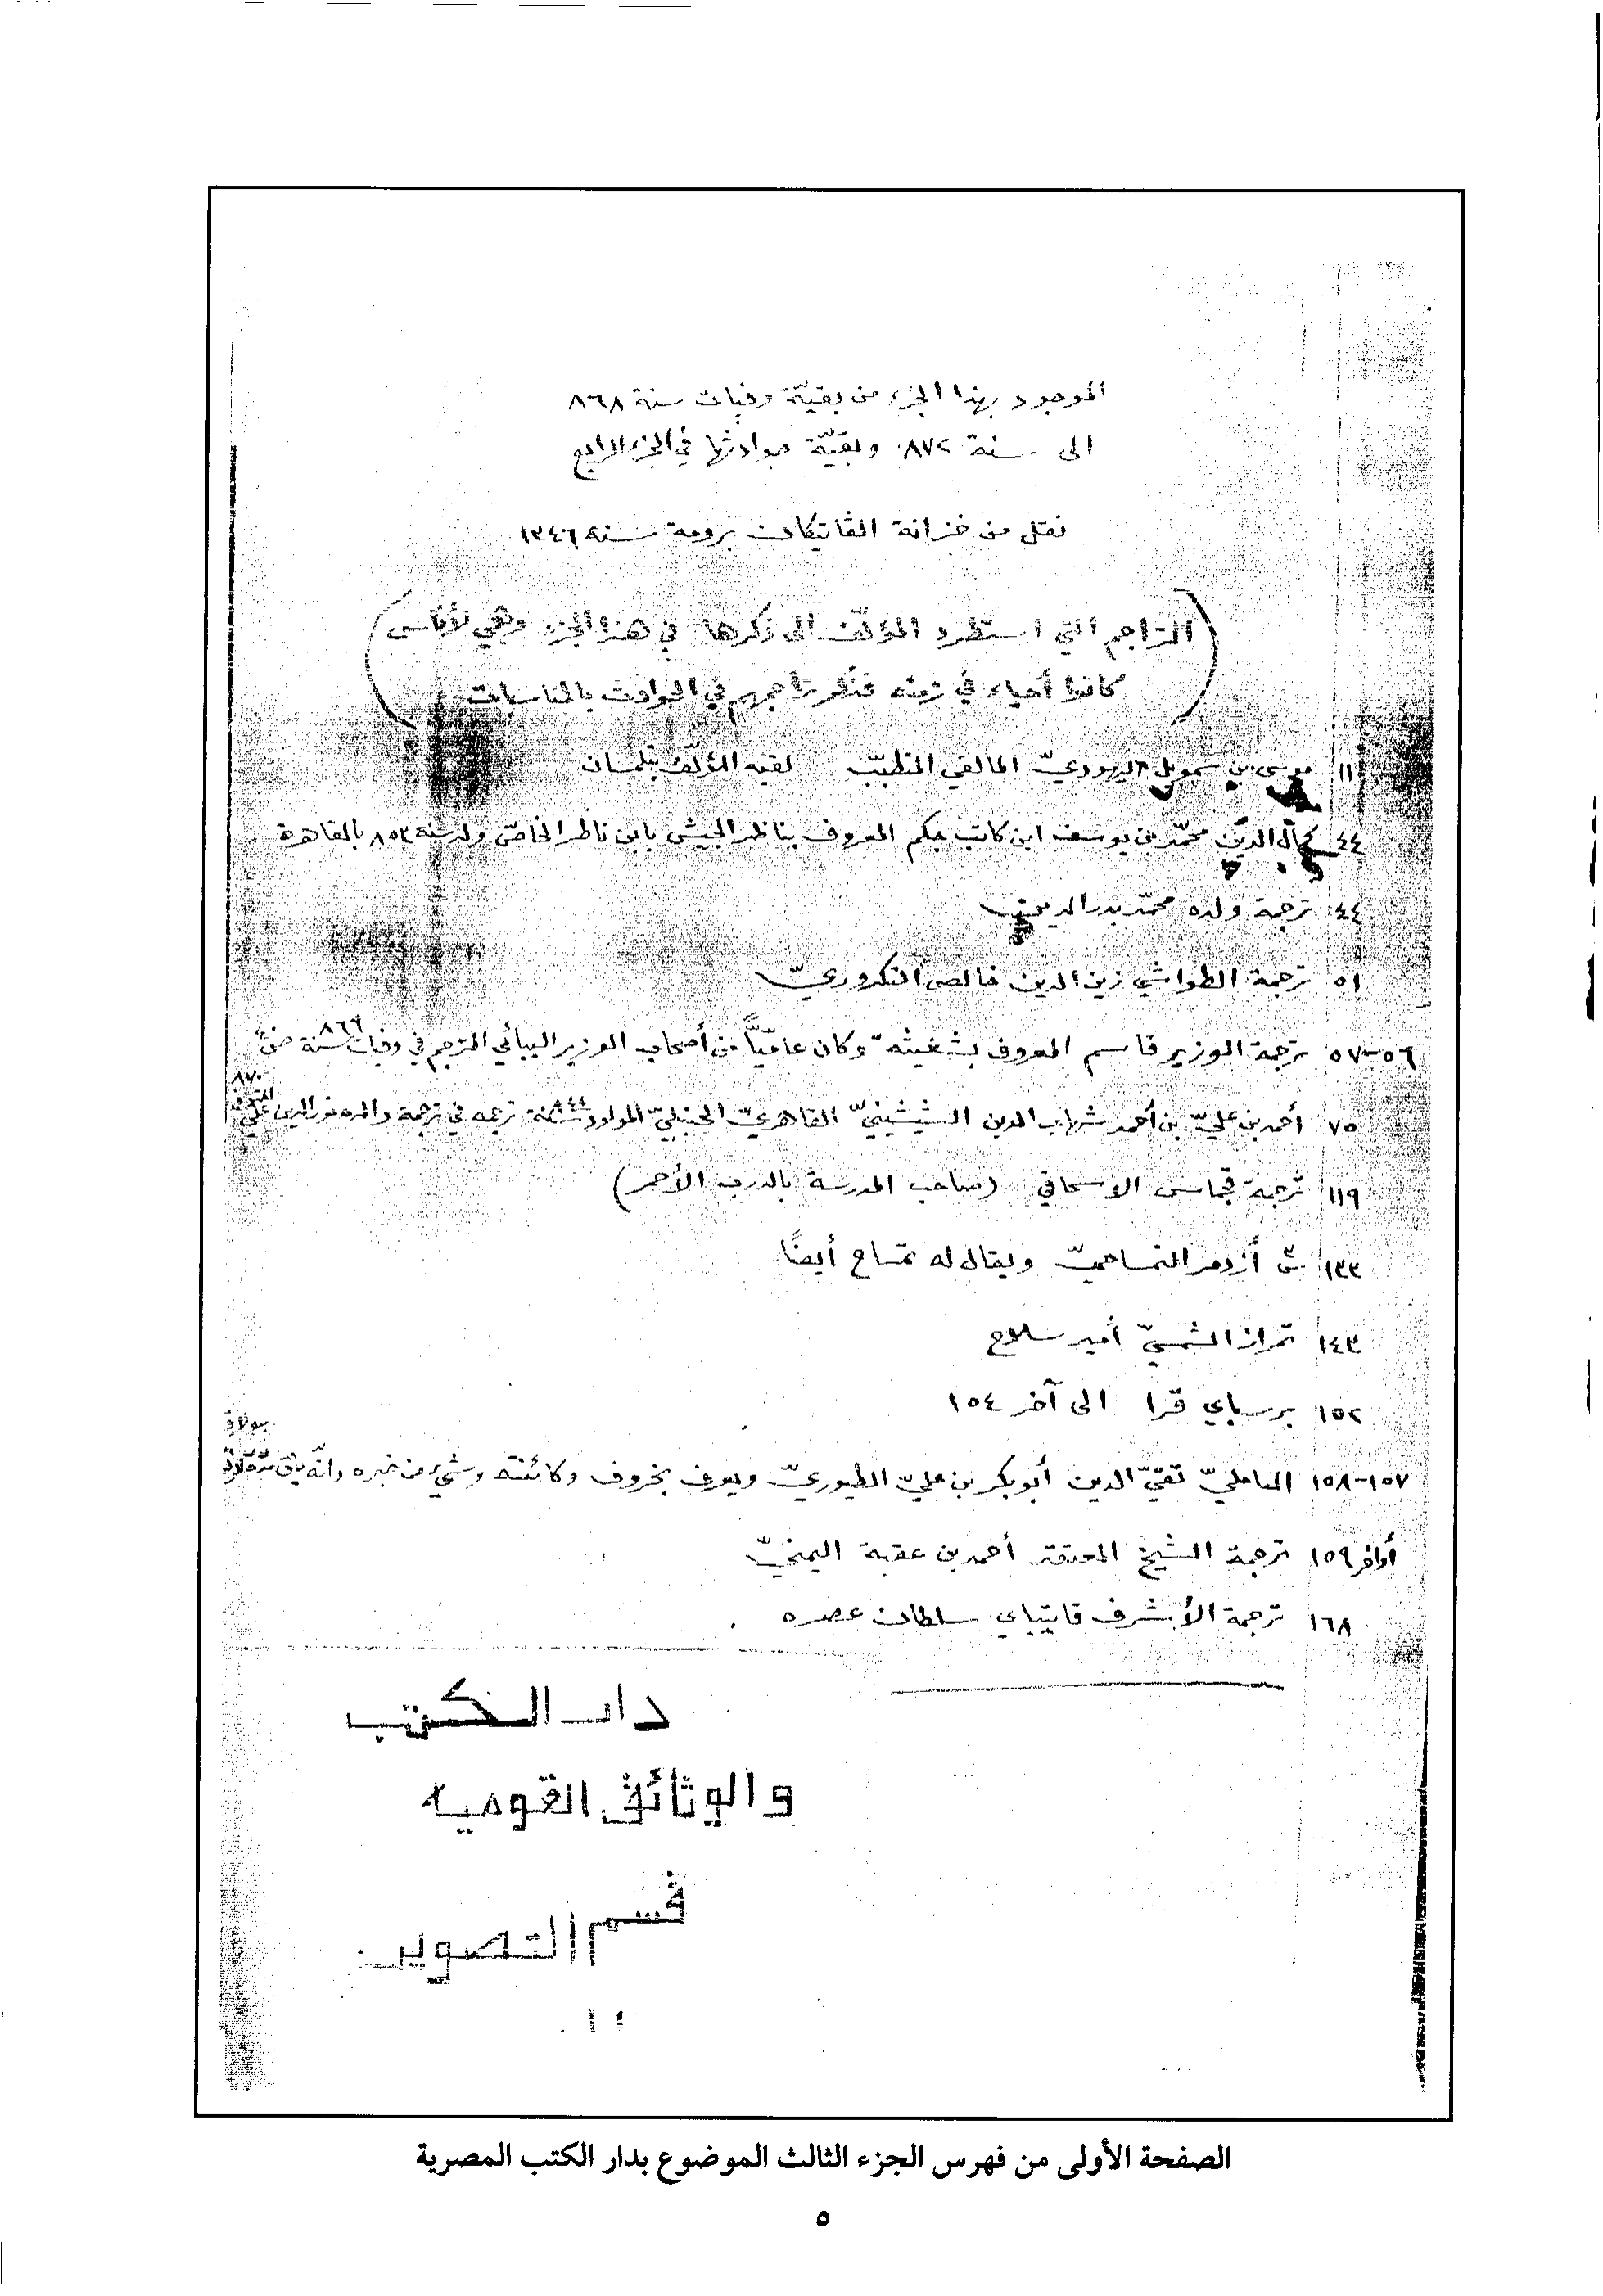 الموجود بهذا الجزء من بقيّة وفيات سنة ٨٦٨
الى سنة ٨٧٢ وبقيّة حوادثها في الجزء الرابع
نقل من خزانة الڤاتيكان برومة سنة ١٣٤٦
(التراجم التي استطرد المؤلّف الى ذكرها في هذا الجزء وهي لأناس
كانوا أحياء في زمنه فذكر تراجمهم في الحوادث بالمناسبات)
١١ موسى بن سمويل اليهوديّ المالقي المتطبّب لقيه المؤلّف بتلمسان
٤٤ كمال الدين محمّد بن يوسف ابن كاتب جكم المعروف بناظر الجيش بابن ناظر الخاصّ ولد سنة ٨٥٢ بالقاهرة
٤٤ ترجمة ولده محمّد بدر الدين
٥١ ترجمة الطواشي زين الدين خالص التكروريّ
٥٦-٥٧ ترجمة الوزير قاسم المعروف بشغيته وكان عاميّاً من أصحاب الوزير الببائي المترجم في وفيات سنة ٨٦٩
٧٥ أحمد بن عليّ بن أحمد شهاب الدين الشيشينيّ القاهريّ الحنبليّ المولود سنة ٨٤٤ ترجمه في ترجمة والده نور الدين عليّ ٨٧٠
١١٩ ترجمة قجماس الاسحاقي (صاحب المدرسة بالدرب الأحمر)
١٣٣ أزدمر التمساحيّ ويقال له تمساح أيضًا
١٤٣ تمراز الشمسيّ أمير سلاح
١٥٢ برسباي قرا الى آخر ١٥٤
١٥٧-١٥٨ تقيّ الدين أبو بكر بن عليّ الطيوريّ ويعرف بخروف وكائنته وشيء من خبره وانّه بولاق
أواخر ١٥٩ ترجمة الشيخ المعتقد أحمد بن عقبة اليمنيّ
١٦٨ ترجمة الأشرف قايتباي سلطان عصره
دار الكتب
والوثائق القوميه
قسم التصوير
الصفحة الأولى من فهرس الجزء الثالث الموضوع بدار الكتب المصرية
٥